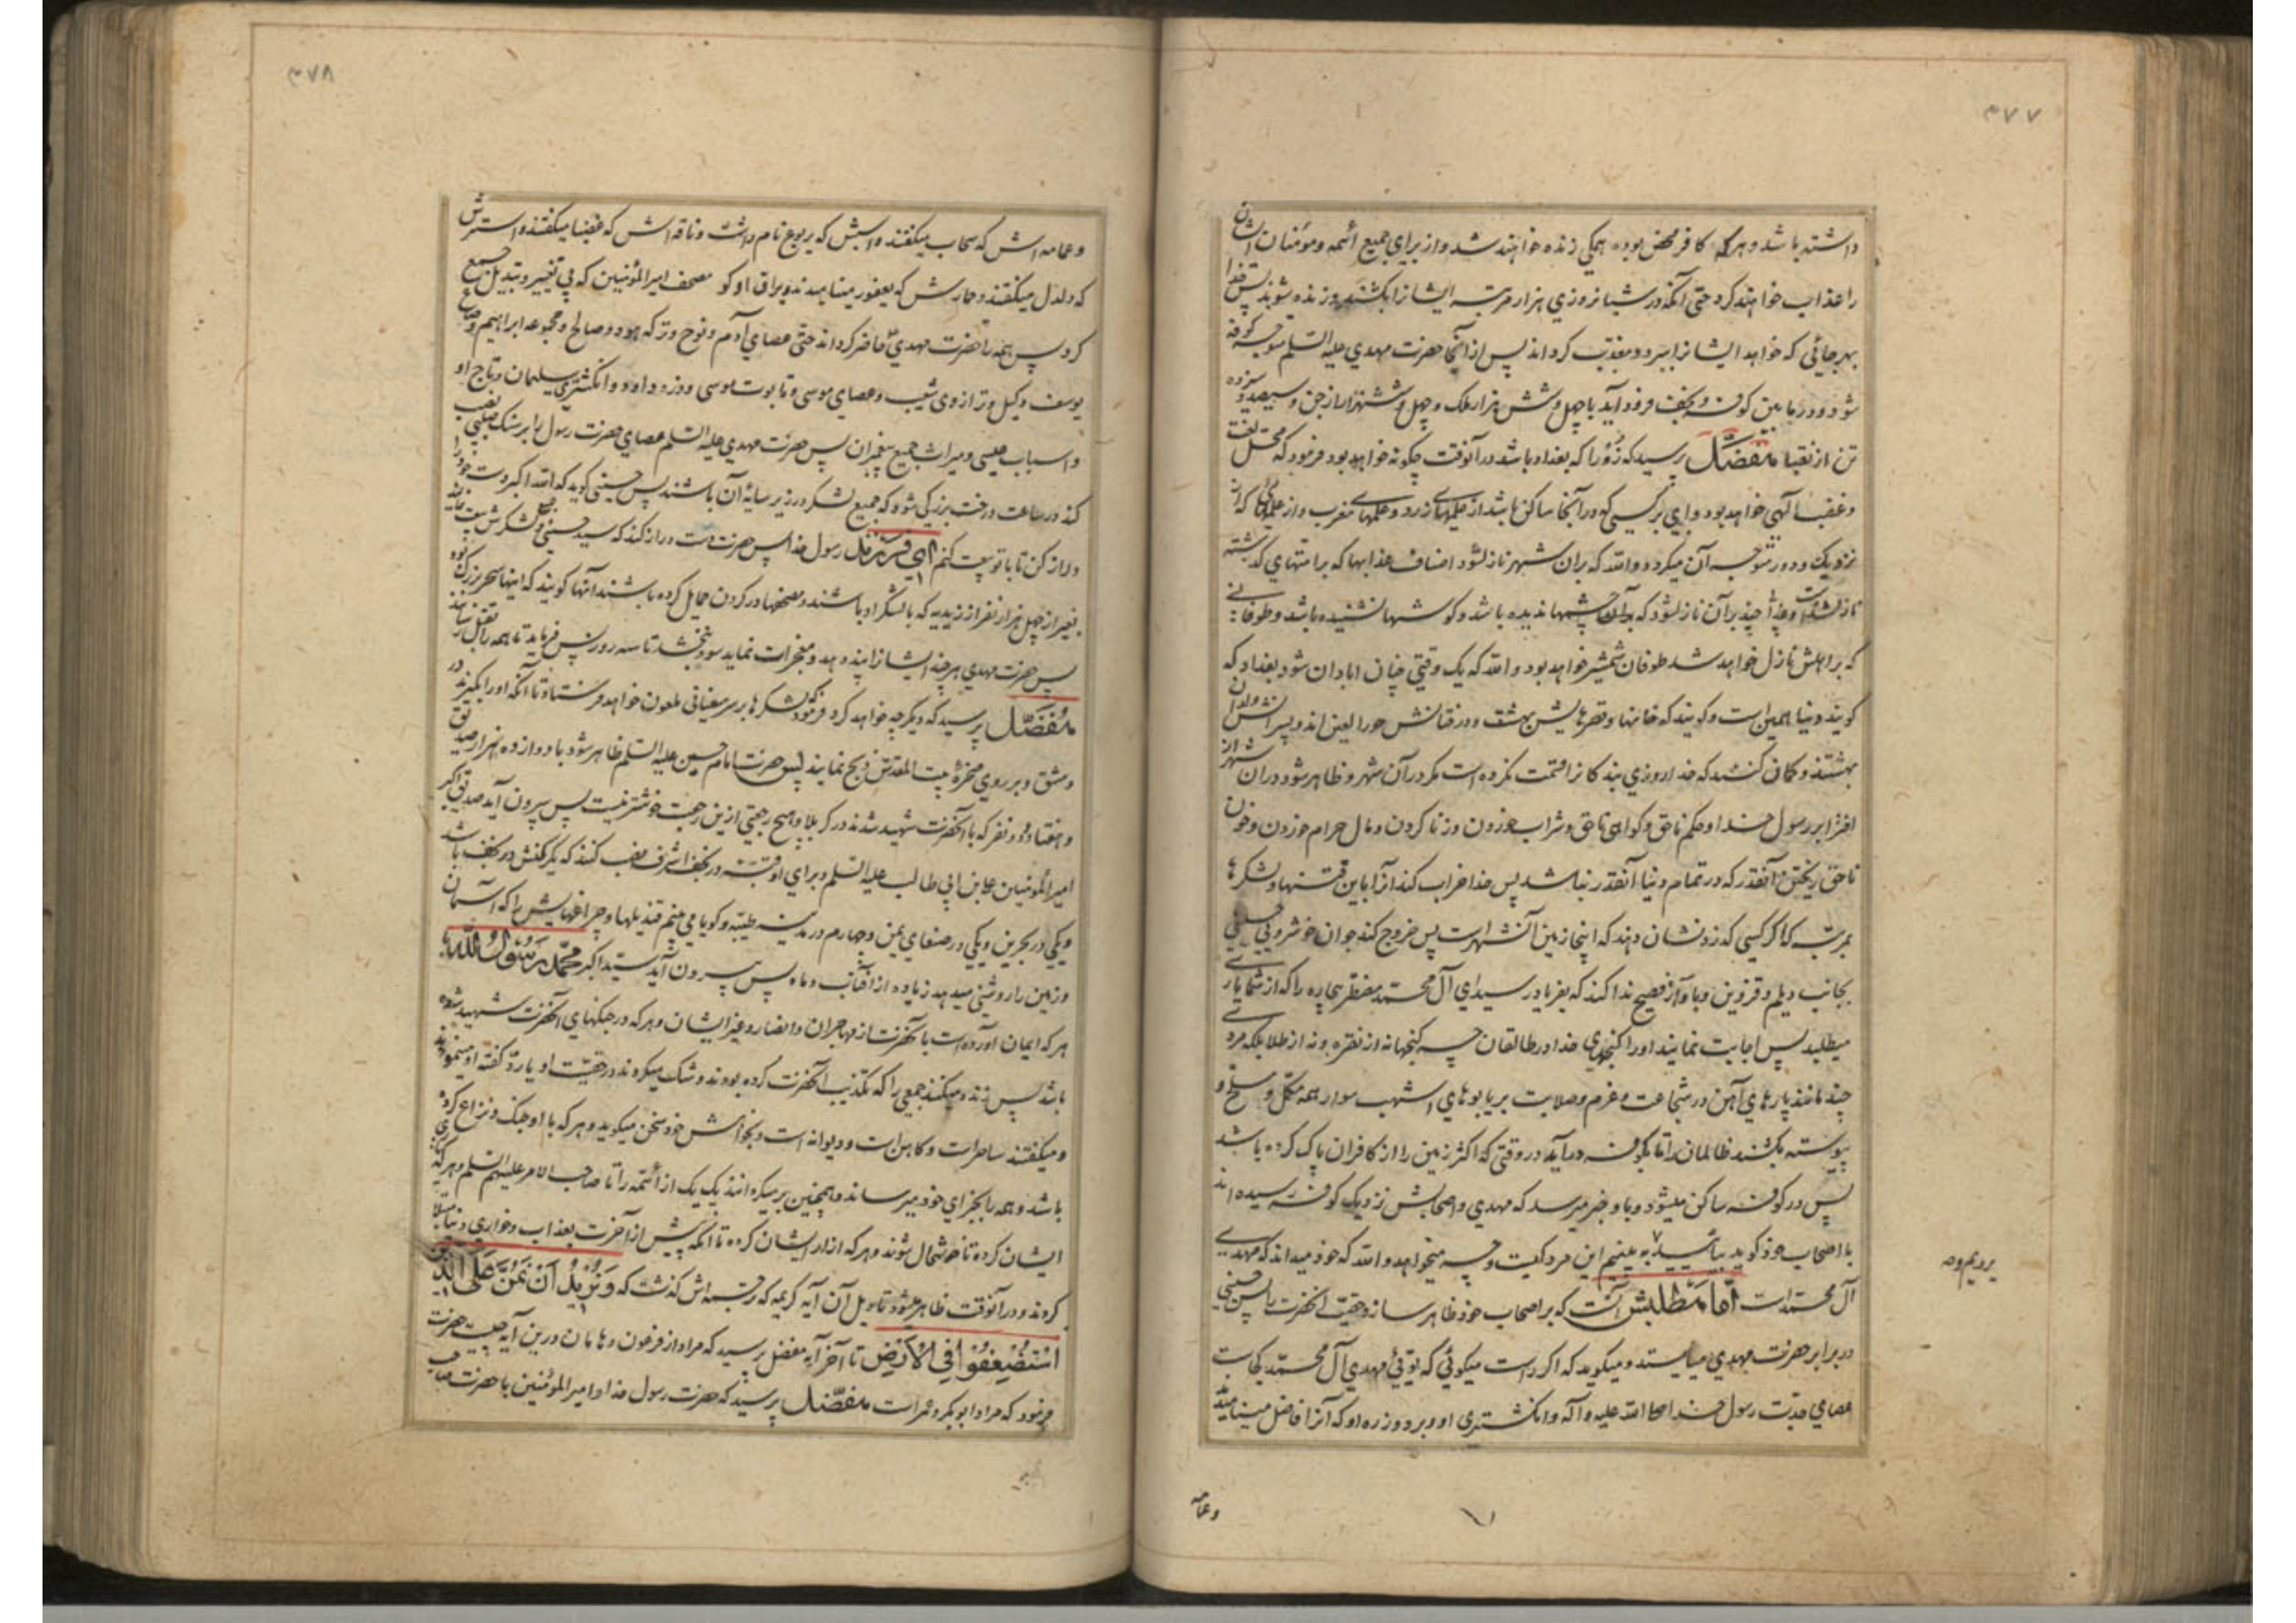 ۴۷۷
داشته باشد و هر که کافر محض بوده همکی زنده خواهند شد و از برای جمیع ائمه و مؤمنان ایشان
را عذاب خواهند کرد حتی آنکه در شبانه روزی هزار مرتبه ایشانرا بکشند و زنده شوند پس خدا
بهر جائی که خواهد ایشانرا ببرد و معذب کرداند پس از آنجا حضرت مهدی علیه السلم متوجه کوفه
شود و در ما بین کوفه و نجف فرود آید با چهل و شش هزار ملک و چهل و شش هزار از جن و سیصد و سیزده
تن از نقبا مفضل پرسید که زورا که بغداد باشد در آنوقت چکونه خواهد بود فرمود که محل لعنت
و غضب الهی خواهد بود و ای بر کسی که در آنجا ساکن باشد از علمهای زرد و علمهای مغرب و از علمهائی که از
نزدیک و دور متوجه آن میکردد و الله که بران شهر نازل شود اصناف عذابها که بر امتهای کذشته
نازل شده است و عذابی چند برآن نازل شود که چشمها ندیده باشد و کوشها نشنیده باشد و طوفانی
که بر اهلش نازل خواهد شد طوفان شمشیر خواهد بود و الله که یک وقتی چنان ابادان شود بغداد که
کویند دنیا همین است و کویند که خانها و قصرهایش بهشت و دخترانش حور العین اند و پسرانش ولدان
بهشتند و کمان کنند که خدا روزی بندکانرا قسمت نکرده است مکر در آن شهر و ظاهر شود دران شهر از
افترا بر رسول خدا و حکم ناحق و کواهی ناحق و شراب خوردن و زنا کردن و مال حرام خوردن و خون
ناحق ریختن آنقدر که در تمام دنیا آنقدر نباشد پس خدا خراب کند آنرا باین فتنها و لشکرها
بمرتبه که اکر کسی که زد نشان دهند که اینجا زمین آن شهر است پس خروج کند جوان خوشروی حسنی
بجانب دیلم و قزوین و با آواز فصیح ندا کند که بفریاد رسید ای آل محمد مضطر بیچاره را که از شما یاری
میطلبد پس اجابت نمایند او را کنجهای خدا در طالقان چه کنجها نه از نقره و نه از طلا بلکه مردی
چند مانند پارهای آهن در شجاعت و عزم و صلابت بر یابوهای اشهب سوار همه مکمل و مسلح و
پیوسته بکشند ظالمان را تا بکوفه درآید در وقتی که اکثر زمین را از کافران پاک کرده باشد
پس در کوفه ساکن میشود و باو خبر میرسد که مهدی و اصحابش نزدیک کوفه رسیده اند
با اصحاب خود کوید بیائید به بینیم این مرد کیست و چه میخواهد و الله که خود میداند که مهدی
آل محمد است اما مطلبش آنست که بر اصحاب خود ظاهر سازد حقیت آنحضرت پس حسنی
در برابر حضرت مهدی میایستد و میکوید که اکر راست میکوئی که توئی مهدی آل محمد کجاست
عصای جدت رسول خدا صلی الله علیه و آله و انکشتری او و برد و زره او که آنرا فاضل مینامیدند
و عما
۴۷۸
و عمامه اش که سحاب میکفتند و اسبش که یربوع نام داشت و ناقه اش که غضبا میکفتند و استرش
که دلدل میکفتند و حمارش که یعفور مینامیدند و براق او کو مصحف امیر المؤمنین که بی تغییر و تبدیل جمع
کرد پس همه را حضرت مهدی حاضر کرداند حتی عصای آدم و نوح و ترکه هود و صالح و مجموعه ابراهیم و صاع
یوسف و کیل و ترازوی شعیب و عصای موسی و تابوت موسی و زره داود و انکشتری سلیمان و تاج او
و اسباب عیسی و میراث جمیع پیغمبران پس حضرت مهدی علیه السلم عصای حضرت رسول را بر سنک صلبی نصب
کند در ساعت درخت بزرکی شود که جمیع لشکر در زیر سایهٔ آن باشند پس حسنی کوید که الله اکبر دست خود را
دراز کن تا با تو بیعت کنم ای فرزند رسول خدا پس حضرت دست دراز کند که سید حسنی و لشکرش بیعت نمایند
بغیر از چهل هزار نفر از زیدیه که با لشکر او باشند و مصحفها در کردن حمایل کرده باشند آنها کویند که اینها سحر بزرک بود
پس حضرت مهدی هر چند ایشانرا پند دهد و معجزات نماید سود نبخشد تا سه روز پس فرماید تا همه را بقتل رسانند
مفضل پرسید که دیکر چه خواهد کرد فرمود که لشکرها بر سر سفیانی ملعون خواهد فرستاد تا آنکه او را بکیرند در
دمشق و بر روی صخرهٔ بیت المقدس ذبح نمایند پس حضرت امام حسین علیه السلم ظاهر شود با دوازده هزار صدیق
و هفتاد و دو نفر که با آنحضرت شهید شدند در کربلا و هیچ رجعتی ازین رجعت خوشتر نیست پس بیرون آید صدیق اکبر
امیر المؤمنین علی بن ابی طالب علیه السلم و برای او قبه در نجف اشرف نصب کنند که یک رکنش در نجف باشد
و یکی در بحرین و یکی در صنعای یمن و چهارم در مدینه طیبه و کویا می بینم قندیلها و چراغهایش را که آسمان
و زمین را روشنی میدهد زیاده از آفتاب و ماه پس بیرون آید سید اکبر محمد رسول الله با
هر که ایمان آورده است با آنحضرت از مهاجران و انصار و غیر ایشان و هر که در جنکهای آنحضرت شهید شده
باشد پس زنده میکنند جمعی را که تکذیب آنحضرت کرده بودند و شک میکردند در حقیت او یا رد کفته او مینمودند
و میکفتند ساحر است و کاهن است و دیوانه است و بخواهش خود سخن میکوید و هر که با او جنک و نزاع کرده
باشد و همه را بجزای خود میرساند و همچنین برمیکردانند یک یک از ائمه را تا صاحب الامر علیهم السلم و هر که یاری
ایشان کرده تا خوشحال شوند و هر که ازار ایشان کرده تا آنکه پیش از آخرت بعذاب و خواری دنیا مبتلا
کردند و در آنوقت ظاهر میشود تاویل آن آیه کریمه که ترجمه اش کذشت که وَنُرِیدُ اَنْ نَمُنَّ عَلَی الَّذِینَ
اسْتُضْعِفُوا فِی الْاَرْضِ تا آخر آیه مفضل پرسید که مراد از فرعون و هامان درین آیه چیست حضرت
فرمود که مراد ابوبکر و عمر است مفضل پرسید که حضرت رسول خدا و امیر المؤمنین با حضرت صاحب